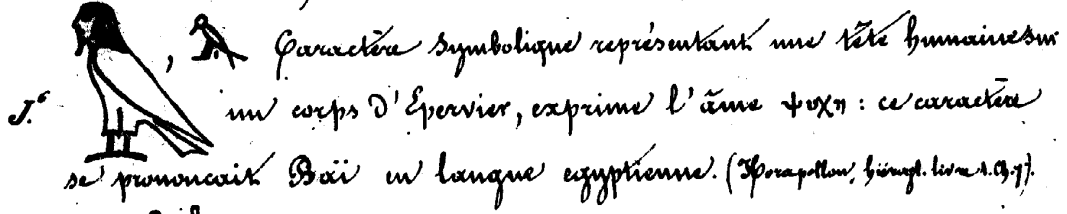 , Caractère Symbolique représentant une tête humaine sur
J.⁶ un corps d'Epervier, exprime l'âme ψυχη : ce caractère
se prononcait Baï en langue egyptienne. (Horapollon, hiérogl. livre 1. Ch. 7).